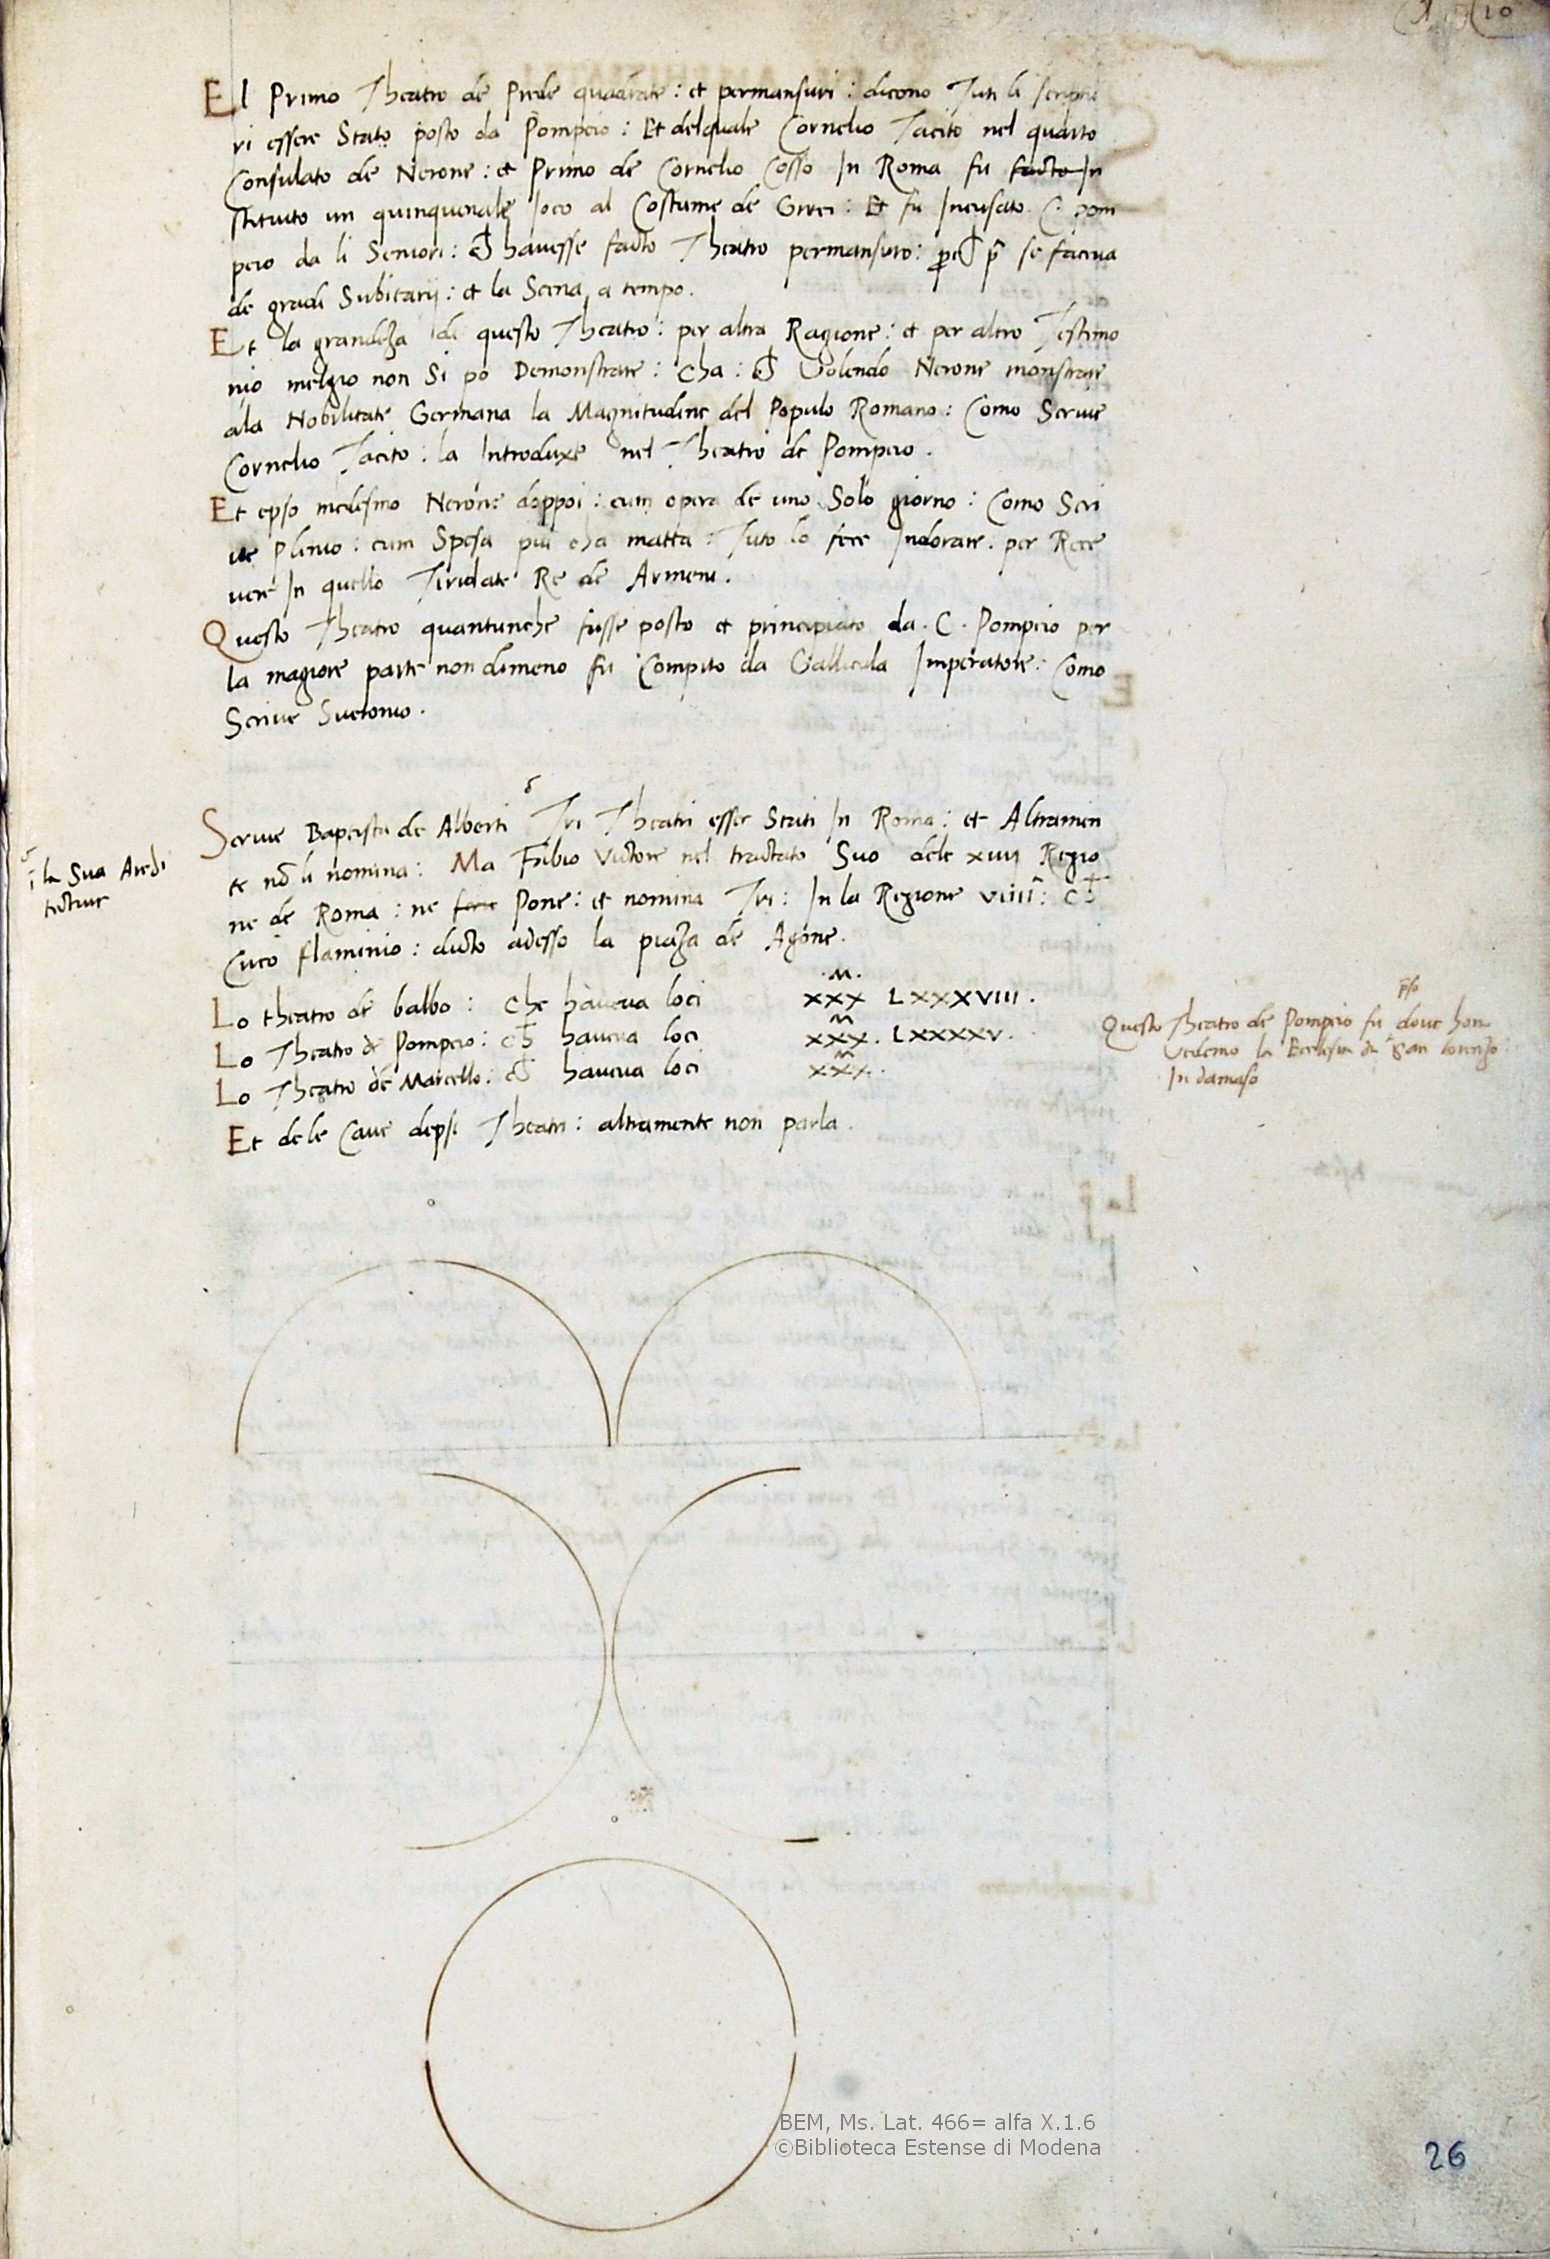 El Primo Theatro de Prede quadrate : et permansuri : dicono Tuti li scripto
ri essere Stato posto da Pompeio : Et delquale Cornelio Tacito nel quarto
Consulato de Nerone : et Primo de Cornelio Cosso In Roma fu facto In
stituito un quinquenale Joco al Costume de Greci : Et fu Incusato C. pom
peio da li Seniori : ch havesse facto Theatro permansuro : perch pª se faceva
de gradi Subitarij : et la Scena a tempo .
Et la grandeza di questo Theatro : per altra Ragione : et per altro Testimo
nio melgio non Si po Demonstrare : cha : ch Volendo Nerone monstrare
ala Nobilitate Germana la Magnitudine del Populo Romano : Como Scrive
Cornelio Tacito : la Introduxe nel Theatro de Pompeio .
Et epso medesmo Nerone doppoi : cum opera de uno Solo giorno : Como Scri
ve Plinio : cum Spesa piu cha matta : Tuto lo fece Indorare . per Rece
vere In quello Tiridate Re de Armeni .
Questo Theatro quantunche fusse posto et principiato da . C . Pompeio per
la magiore parte non dimeno fu Compito da Gallicula Imperatore : Como
Scrive Svetonio .
Scrive Baptista de Alberti Tri Theatri esser Stati In Roma : et Altramen
te nō li nomina : Ma Fabio Victore nel tractato Suo dele xiiij Regio
ī la Sua Archi
tecture
ne de Roma : ne fece Pone : et nomina Tri : In la Regione VIIIIª : ch
Circo flaminio : dicto adesso la piaza de Agone .
Lo theatro de balbo : che haveva loci .M. XXX LXXXVIII .
Lo Theatro de Pompeio : ch haveva loci M XXX . LXXXXV .
Lo Theatro de Marcello : ch haveva loci M XXX .
Questo Theatro de Pompeio fu dove hora
Vedemo la Ecclesia de San Lorenzo
In damaso
Et dele Cave depsi Theatri : altramente non parla .
BEM, Ms. Lat. 466= alfa X.1.6
©Biblioteca Estense di Modena
26